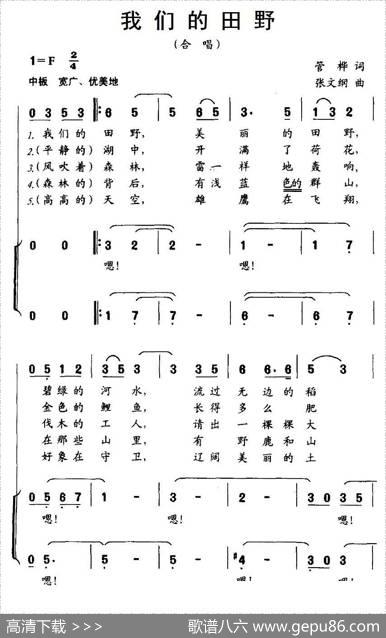 我们的田野
(合唱)
1=F 2/4
管桦 词
中板 宽广、优美地
张文纲 曲
0 3 5 3 6 5 5 1 6 5 3· 5 1 5
1.我们的 田野, 美丽的田野,
2.(平静的)湖中, 开满了荷花,
3.(风吹着)森林, 雷一样地轰响,
4.(森林的)背后, 有浅蓝色的群山,
5.(高高的)天空, 雄鹰在飞翔,
0 0 3 2 2 - 1 - 1 7
嗯! 嗯!
0 0 1 7 5 5 6 - 6 7
0 5 1 2 3 3 3 3 5 6 6·6 5 3
碧绿的河水, 流过无边的稻
金色的鲤鱼, 长得多么肥
伐木的工人, 请出一棵棵大
在那些山里, 有野鹿和山
好象在守卫, 辽阔美丽的土
0 5 6 7 1 - 3 - 2 - 1 0 3 5
嗯! 嗯! 嗯!
0 5 5 - 5 - #4 - 3 0 3
嗯! 嗯! 嗯!
高清下载 >>>
歌谱八六 www.gepu86.com